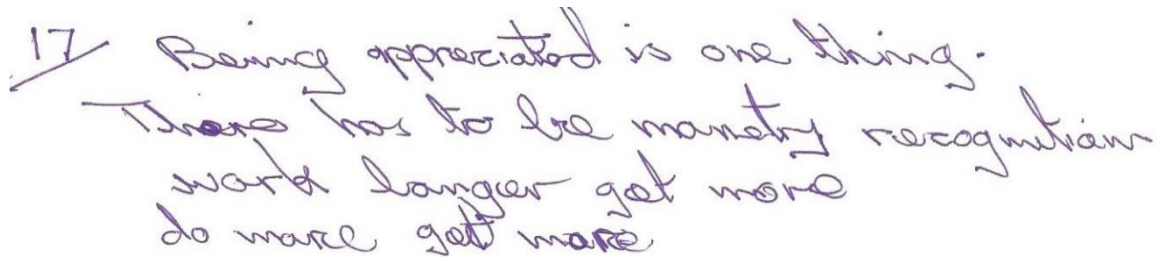 17 Being appreciated is one thing.
There has to be manetry recognition
work longer get more
do more get more